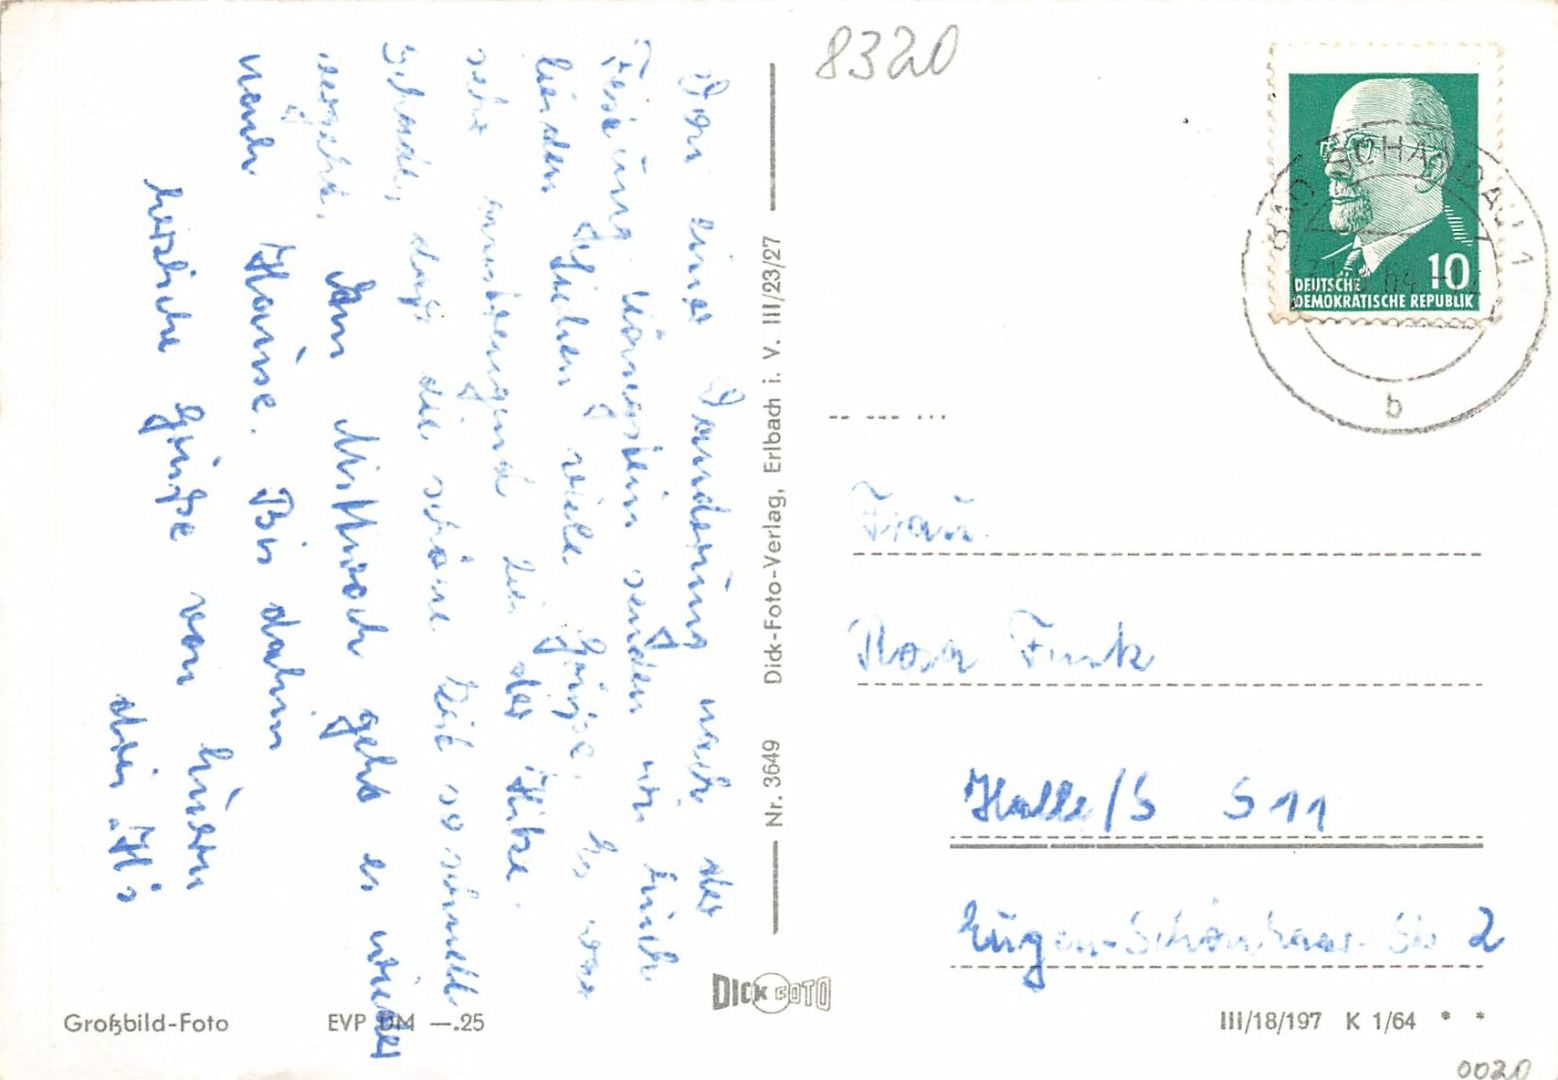 Von einer Wanderung nach der
Festung Königstein senden wir Euch
lieben Hiehen viele Grüße. Es war
sehr anstrengend bei der Hitze.
Schade, daß die schöne Zeit so schnell
vergeht. Am Mittwoch geht es wieder
nach Hause. Bis dahin
herzliche Grüße von Euern
drei H's
Großbild-Foto
EVP DM —.25
Nr. 3649 Dick-Foto-Verlag, Erlbach i. V. III/23/27
DICK FOTO
8320
DEUTSCHE
DEMOKRATISCHE REPUBLIK
10
BAD SCHANDAU 1
b
Frau
Rosa Funk
Halle/S S 11
Eugen-Schönhaar-Str 2
III/18/197 K 1/64 * *
0020